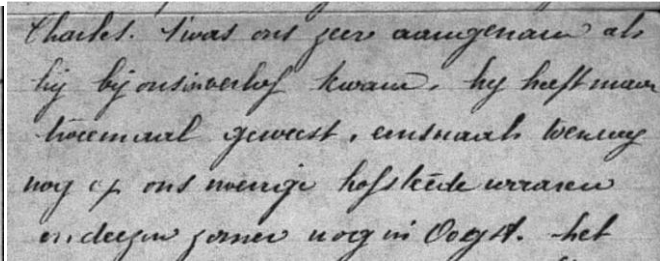 Charles. t'was ons zeer aangenaam als
hij bij ons in verlof kwam. hy heeft maar
tweemaal geweest, eensmaals toen wy
nog op ons vorige hofstede waaren
en deezen zomer nog in Oogst. het